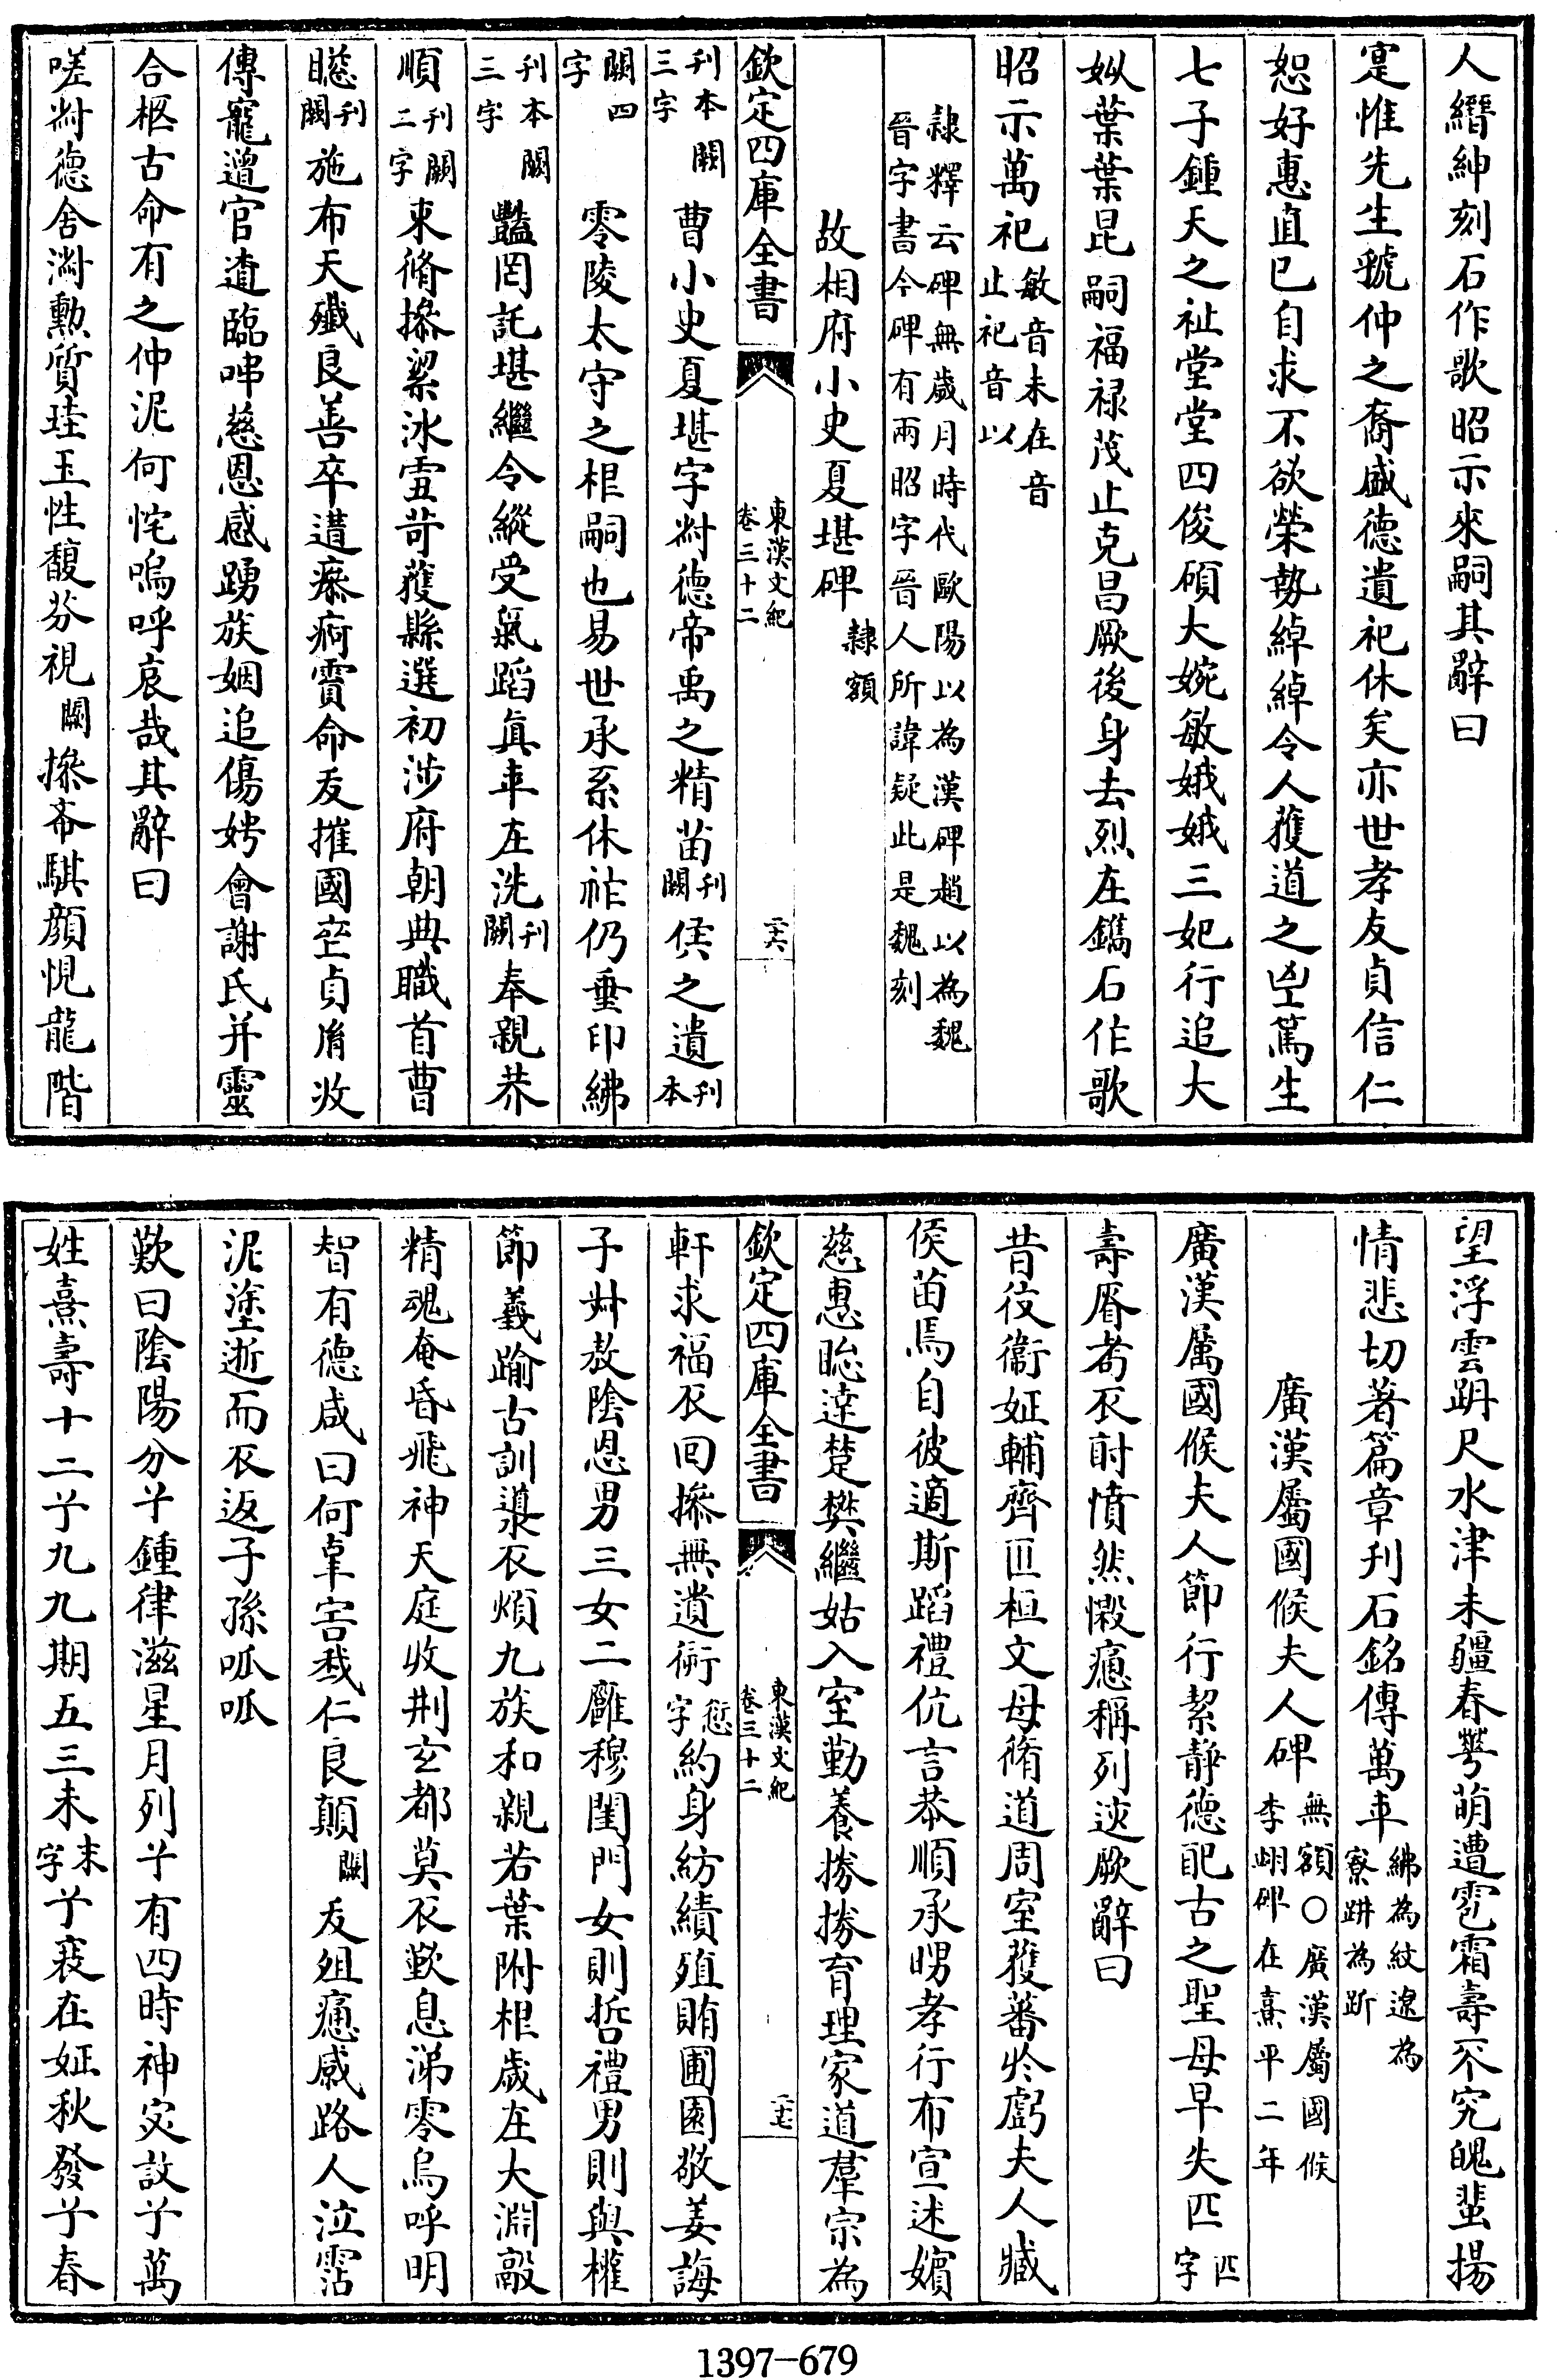 人縉紳刻石作歌昭示來嗣其辭曰
寔惟先生虢仲之裔盛德遺祀休矣亦世孝友貞信仁
恕好惠直已自求不欲榮勢綽綽令人蒦道之𡶤篤生
七子鍾天之祉堂堂四俊碩大婉敏娥娥三妃行追大
姒葉葉昆嗣福祿茂止克昌厥後身去烈在鐫石作歌
昭示萬祀敏音未在音止祀音以
隸釋云碑無歲月時代歐陽以為漢碑趙以為魏
晉字書今碑有兩昭字晉人所諱疑此是魏刻
故相府小史夏堪碑隸額
欽定四庫全書
東漢文紀
卷三十二
二十六
曹小史夏堪字叔德帝禹之精苗刊闕侯之遺刊本
刊本闕三字
零陵太守之根嗣也易世承系休祚仍垂印紼
闕四字
豔罔託堪繼令縱受氣蹈真年在洗刊闕奉親恭
刊本闕三字
順刊闕二字束脩摻絜冰雪苛蒦縣選初涉府朝典職首曹
聽刊闕施布天殲良善卒遘瘵痾賈命友摧國空貞肎收
傳寵遒官遣臨啼慈恩感踴族姻追傷娉會謝氏并靈
合柩古命有之仲泥何怪嗚呼哀哉其辭曰
嗟叔德舍淵勳質珪玉性馥芬視闕摻斋騏顏怳龍階
望浮雲跀尺水津未疆春蕚萌遭雹霜壽不究魄蜚揚
情悲切著篇章刊石銘傳萬年紼為紋遼為寮趼為跀
廣漢屬國候夫人碑無額○廣漢屬國候李翊碑在熹平二年
廣漢屬國候夫人節行絜靜德配古之聖母早失匹匹字
壽肾者不尌憤然慨癔稱列迹厥辭曰
昔伎衞姃輔齊叵桓文母脩道周室蒦蕃於虧夫人臧
侯苗焉自彼適斯蹈禮伉言恭順承甥孝行布宣述嬪
慈惠聡達楚樊繼姑入室勤養捗捗育理家道羣宗為
欽定四庫全書
東漢文紀
卷三十二
二十七
軒求福不回摻無遺術愆字約身紡績殖賄圃園敬姜誨
子艸敖陰恩男三女二雝穆閨門女則哲禮男則與權
節義踰古訓導不煩九族和親若葉附根歲在大淵敲
精魂奄昏飛神天庭收荆玄都莫不歎息涕零烏呼明
智有德咸曰何辜害哉仁良顛闕友俎癔感路人泣霑
泥塗逝而不返子孫呱呱
歎曰陰陽分兮鍾律滋星月列兮有四時神灾設兮萬
姓熹壽十二兮九九期五三未末字兮衰在姃秋發兮春
1397-679